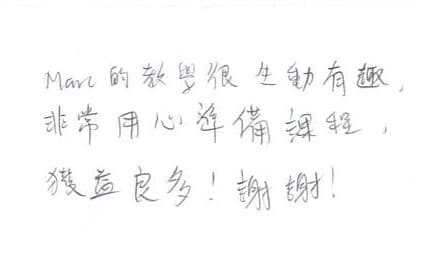 Marc 的教學很生動有趣，
非常用心準備課程，
獲益良多！謝謝！